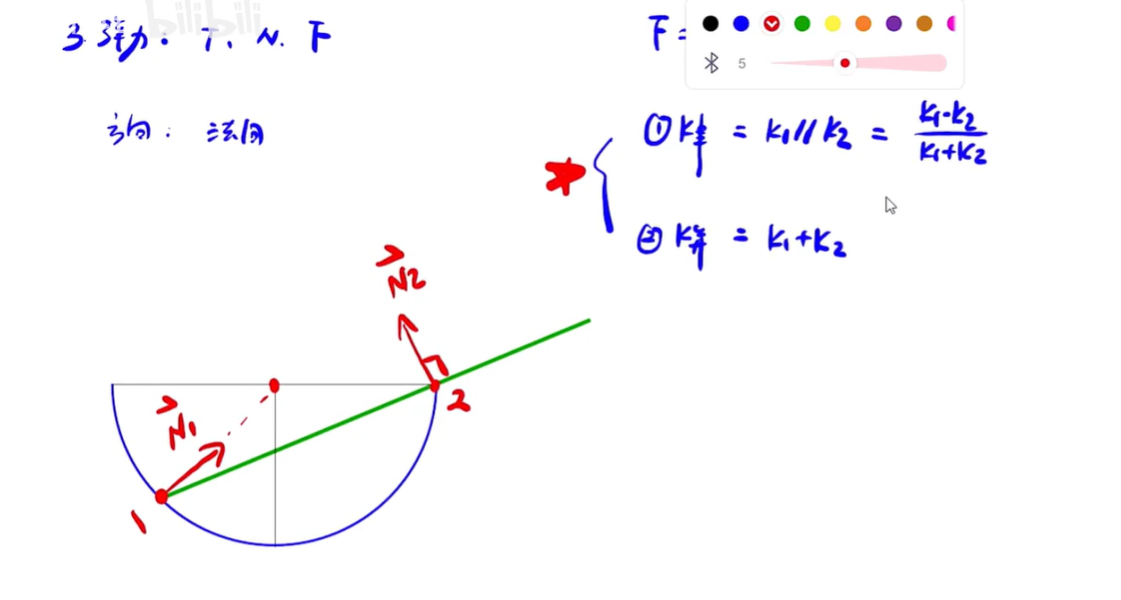 bilibili
3. 弹力: T、N、F
F=
5
方向: 法向
①K串 = K₁//K₂ = K₁·K₂/K₁+K₂
②K并 = K₁+K₂
N₂
N₁
2
1